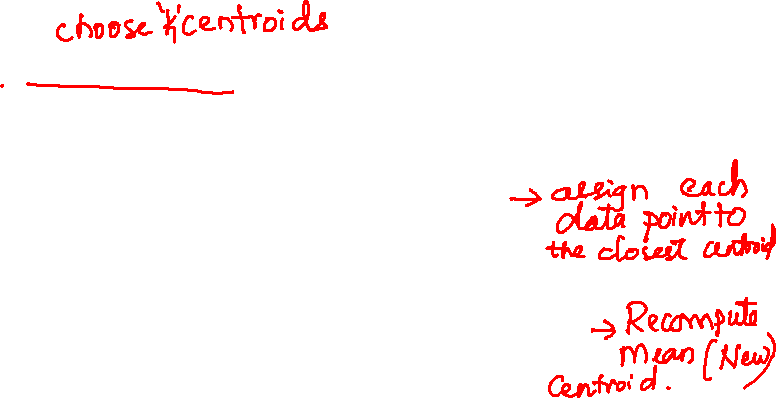 choose 'k' centroids
→ assign each
data point to
the closest centroid
→ Recompute
mean (New)
Centroid.